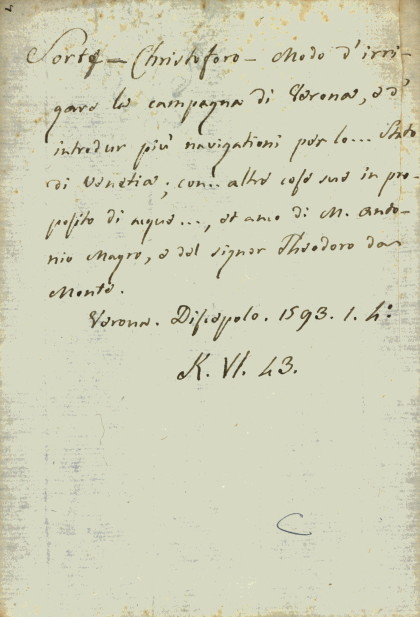 Sorte — Christoforo — Modo d'irri-
gare la campagna di Verona, e d'
introdur più navigationi per lo... Stato
di Venetia; con... altre cose sue in pro-
posito di acque..., et anco di M. Anto-
nio Magro, e del signor Theodoro da
Monte.
Verona. Discepolo. 1593. 1. 4.º
K. VI. 43.
C